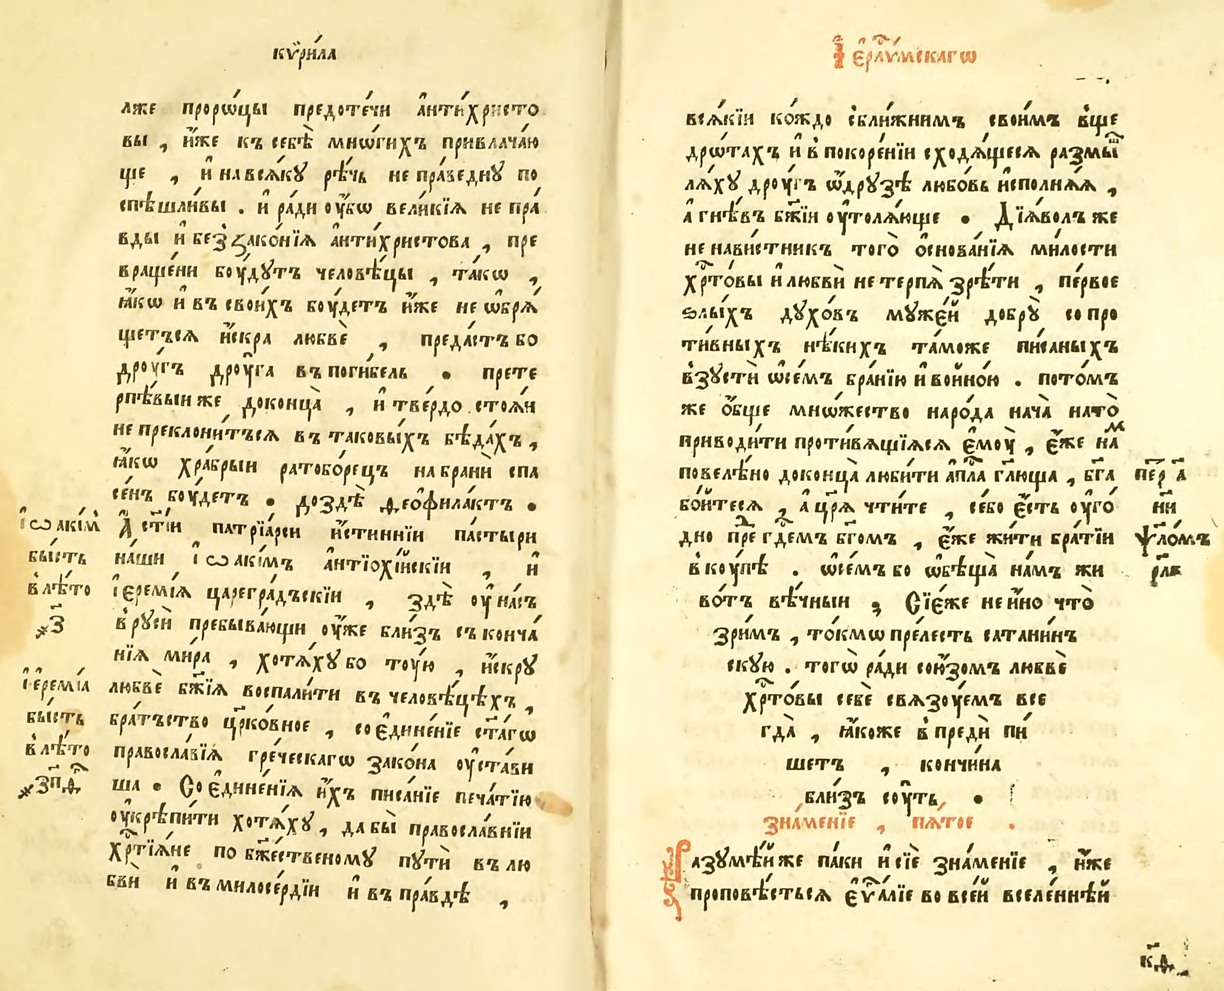 кѷри́ла
лже прорѡ́цы предоте́чи а҆нтѝхристо
вы , и҆́же къ себѣ̀ мнѡ́гихъ привлача́ю
ще , и҆ на вся́ку рѣ́чь не пра́ведну по
спѣ́шливы . и҆ ра́ди ᲂу҆́бѡ вели́кїѧ не пра́
вды и҆ беꙁꙁако́нїѧ а҆нти́христова , пре
враще́ни бᲂу́дутъ человѣ́цы , та́кѡ ,
ꙗ҆́кѡ и҆ въ свои́хъ бᲂу́детъ и҆́же не ѡ҆брѧ́
щетъсѧ и҆́скра любвѐ , преда́стъ бо
дрᲂу́гъ дрᲂу́га въ поги́бель . прете
рпѣ́выи же доконца̀ , и҆ тве́рдо стоѧ́и
не преклони́тъсѧ въ таковы́хъ бѣда́хъ ,
ꙗ҆́кѡ хра́брыи ратобо́рецъ на бра́ни спа
се́нъ бᲂу́детъ . до ꙁдѣ̀ ѳ̑еофила́ктъ .
І҆ѡаки́м А҆ ст҃і́и патрїа́рси и҆́стинніи па́стыри
бы́сть на́ши І҆ѡаки́мъ а҆нтїохі́йскїи , и҆
в лѣ́то І҆ереми́ѧ цареградъскїи , ꙁдѣ̀ ᲂу҆ на́съ
҂ꙁ҃ в рᲂу́си пребыва́ющи ᲂу҆́же бли́ꙁъ съконча́
нїѧ ми́ра , хотѧ́ху бо то́ую , и҆́скру
І҆ереми́ѧ любвѐ бж҃їѧ воспали́ти въ человѣ́цѣхъ ,
бы́сть бра́тъство цр҃ко́вное , соедине́нїе ст҃а́гѡ
в лѣ́то правосла́вїѧ гре́ческагѡ зако́на ᲂу҆ста́ви
҂ꙁп҃д ша . Соедине́нїѧ и҆́хъ писа́нїе печа́тїю
ᲂу҆крѣпи́ти хотѧ́ху , да бы̀ правосла́внїи
хр҃тїѧ́не по бж҃е́ственому пути̑ въ лю
бви̑ и҆ въ милосе́рдїи и҆ въ пра́вдѣ ,
І҆ер҃лᲂу́мскагѡ
всѧ́кїи ко́ждо сбли́жнимъ свои́мъ в̾ще
дрѡ́тахъ и҆ в̾ покоре́нїи сходѧ́щесѧ раꙁмы
лѧ́ху дрᲂу́гъ ѡ҆ дру́зѣ любо́вь и҆сполнѧ́ѧ ,
а҆ гнѣ́въ бж҃їи ᲂу҆толѧ́юще . Дїѧ́волъ же
ненави́стникъ того̀ ѡ҆снова́нїѧ ми́лости
хр҃то́вы и҆ любви̑ не терпѧ̀ зрѣ́ти , пе́рвое
ѕлы́хъ духо́въ муже́й добрꙋ̀ сопро
ти́вныхъ нѣ́кихъ та́може пи́саныхъ
в̾ꙁусти̑ ѡсе́мъ бра́нїю и҆ войно́ю . пото́мъ
же ѻ҆́бще мнѡ́жество наро́да нача̀ на то̀
приводи́ти проти́вѧщїѧсѧ є҆мᲂу̀ , є҆́же нам
повелѣ́но доконца̀ люби́ти а҆п҃ла гл҃юща , бг҃а пе́р҃ а҃
бо́йтесѧ , а҆ цр҃ѧ чти́те , се бо є҆́сть ᲂу҆го́ ни
дно пре гдемъ бг҃омъ , є҆́же жи́ти бра́тїи ѱло́мъ
в̾ кᲂу́пѣ . ѡсе́мъ бо ѡ҆бѣща̀ на́мъ жи рл҃в
во́тъ вѣ́чныи ; Сїе́же не и҆́но что̀
ꙁри́мъ , то́кмѡ пре́лесть сатани́нъ
скую . тогѡ̀ ра́ди сою́ꙁомъ любвѐ
хр҃то́вы себѐ свѧзᲂу́емъ все
гда̀ , ꙗ҆́коже в̾преди̑ пи́
шетъ , кончи́на
бли́ꙁъ сᲂу́ть .
ꙁна́менїе , пѧ́тое .
Раꙁумѣ́й же па́ки и҆ сїѐ ꙁна́менїе , и҆́же
проповѣ́стьсѧ є҆ѵ҃а́лїе во все́й вселе́ннѣй
к҃д